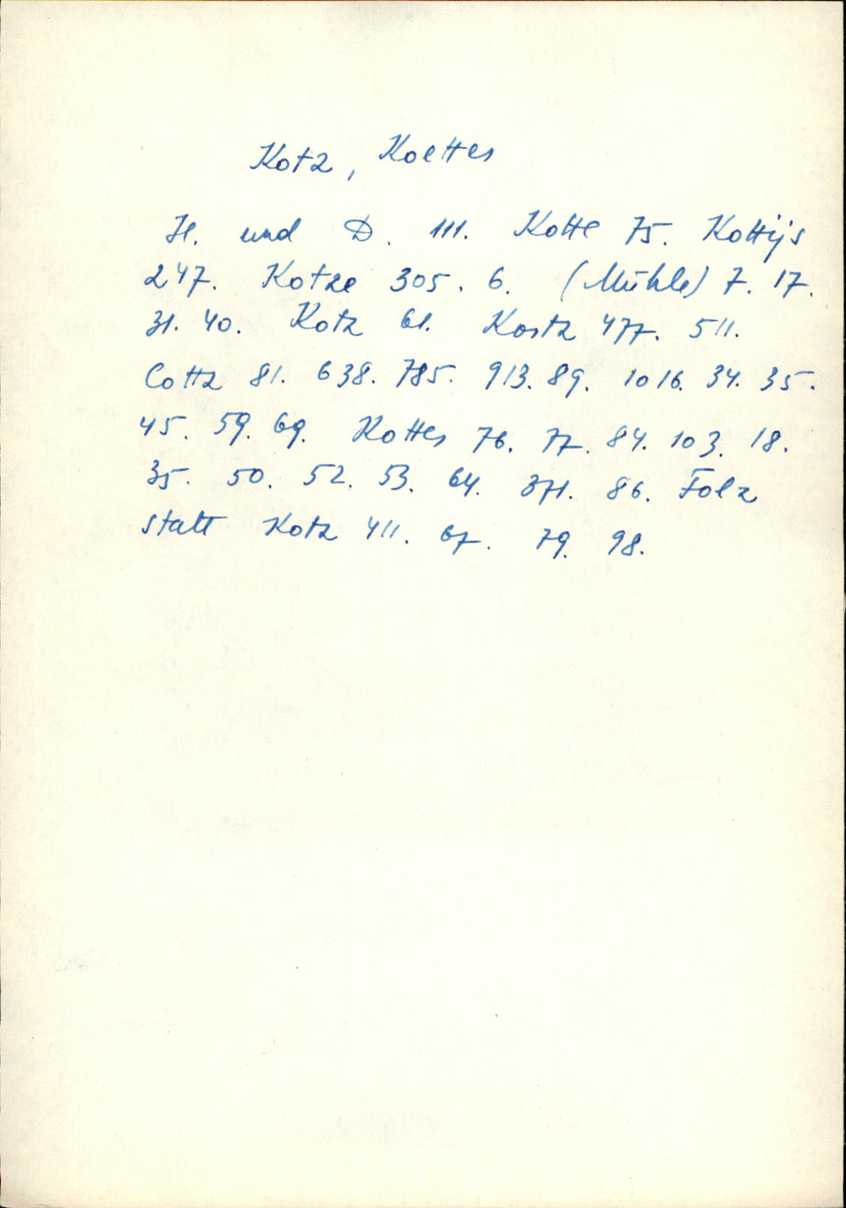 Kotz, Koettes
H. und D. 111. Kotte 75. Kottÿs
247. Kotze 305. 6. (Mühle) 7. 17.
31. 40. Kotz 61. Kostz 477. 511.
Cottz 81. 638. 785. 913. 89. 1016. 34. 35.
45. 59. 69. Kottes 76. 77. 84. 103. 18.
35. 50. 52. 53. 64. 371. 86. Folz
statt Kotz 411. 67. 79. 98.